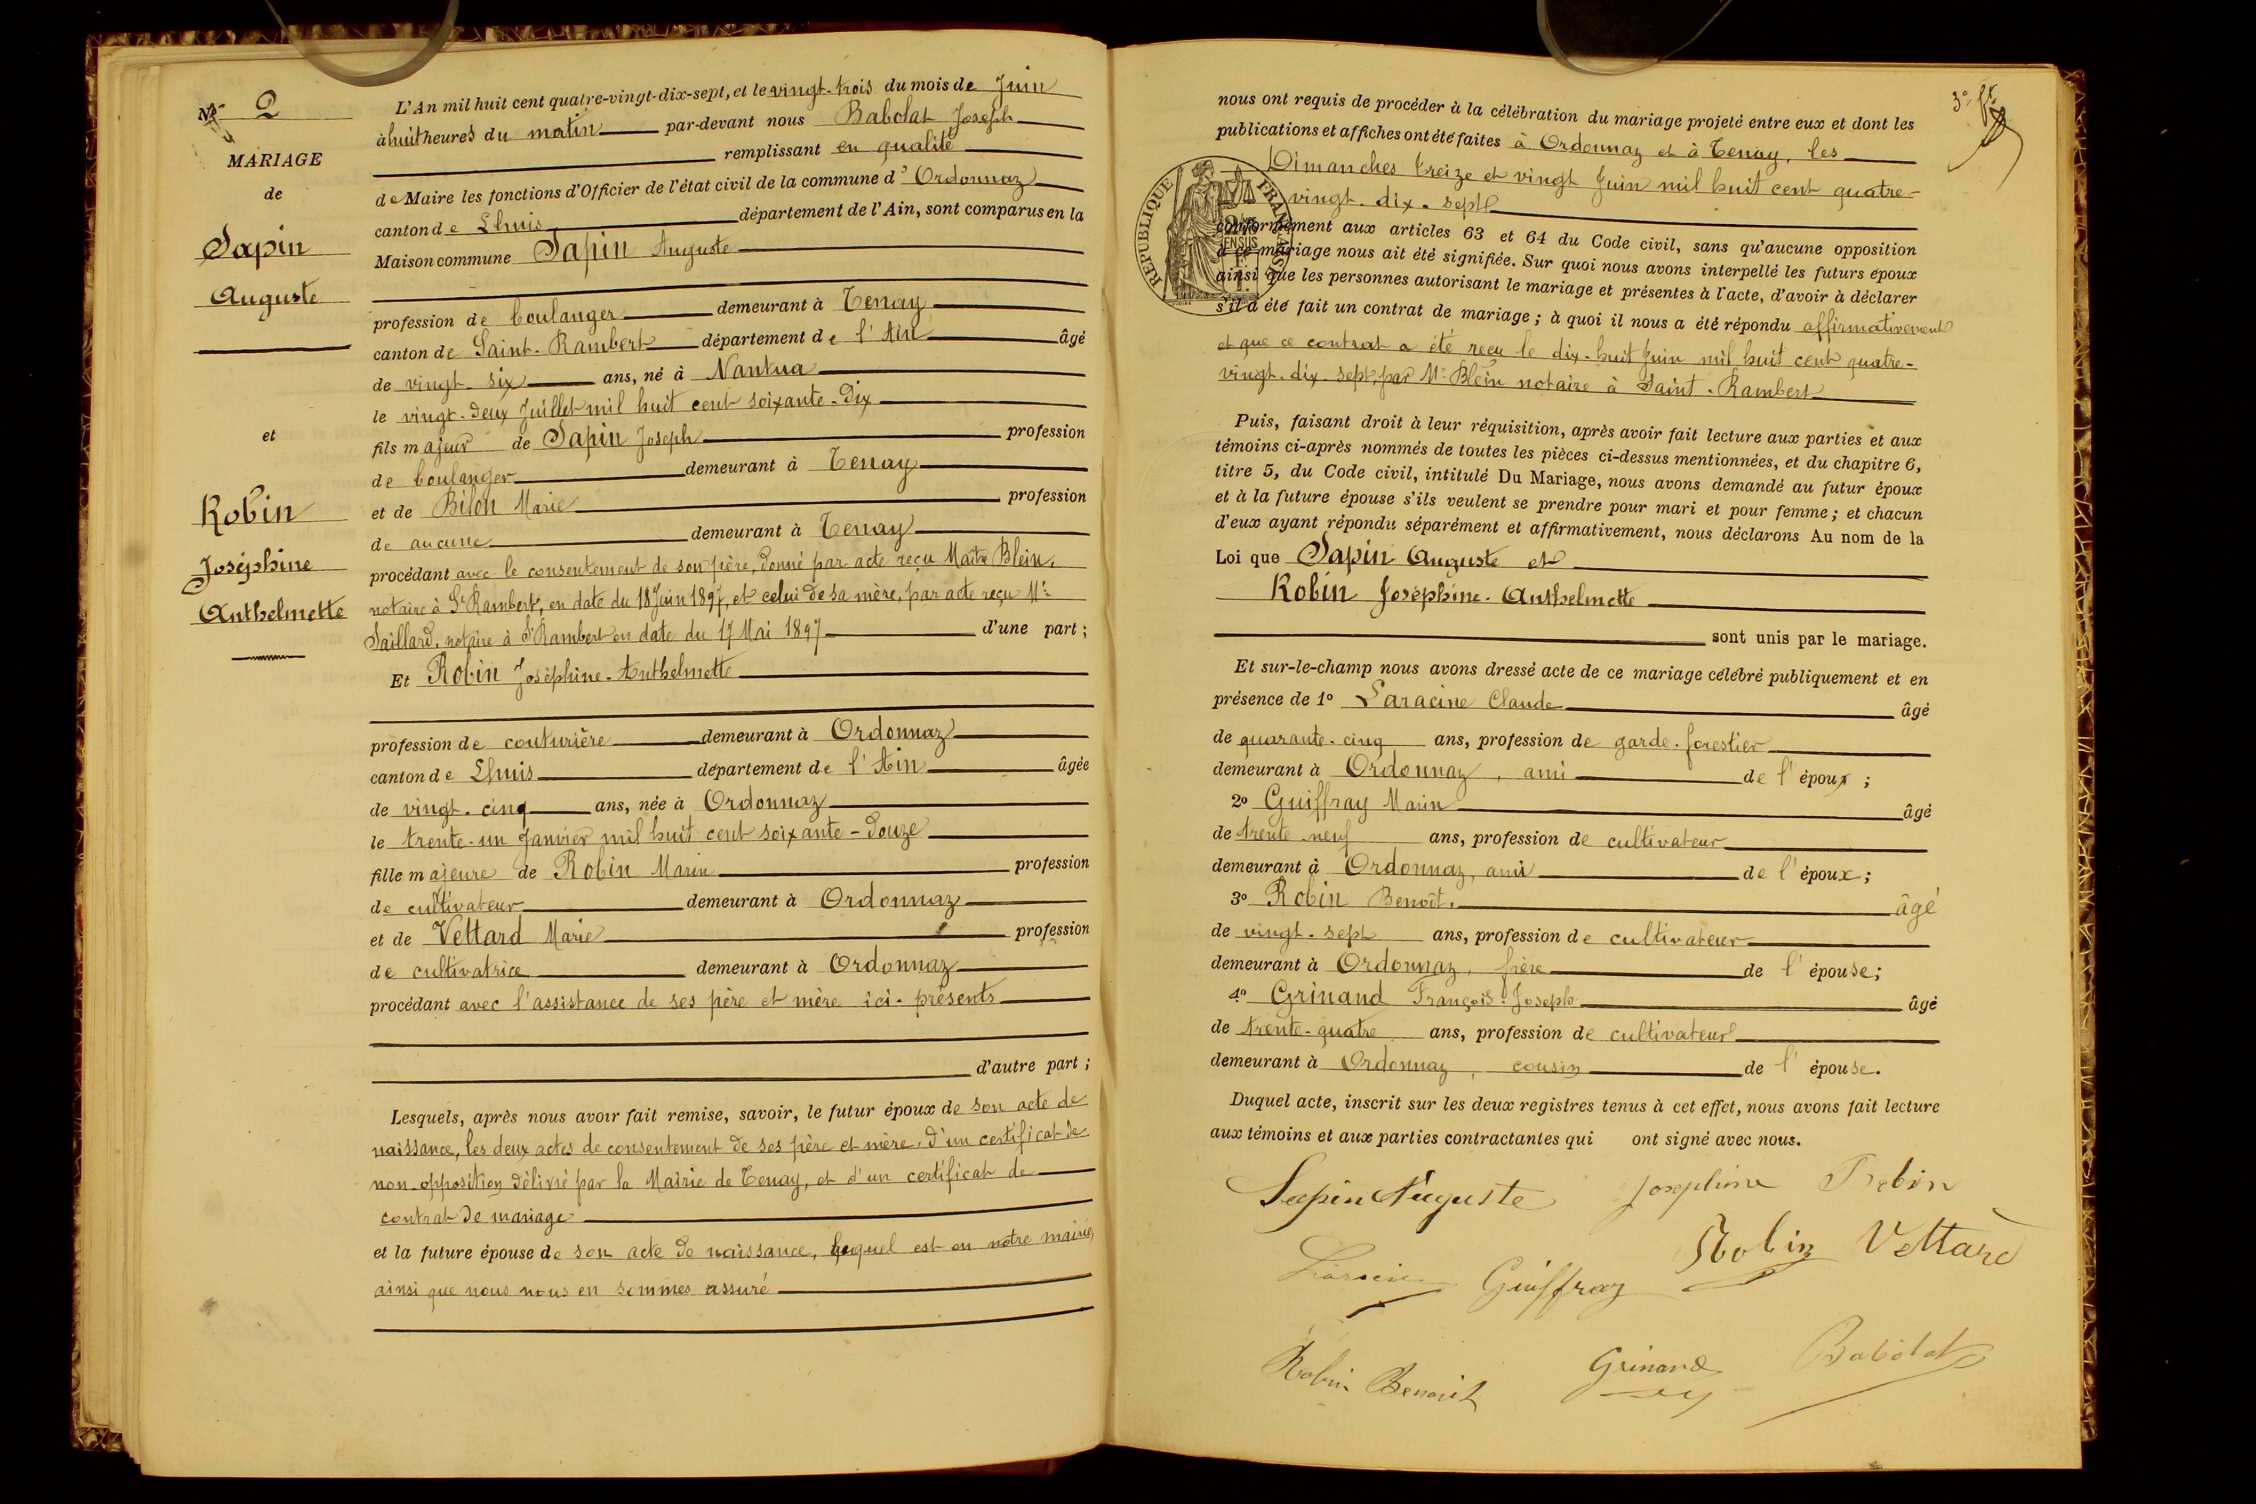 N° 2
MARIAGE
de
Sapin
Auguste
et
Robin
Joséphine
Anthelmette
L'An mil huit cent quatre-vingt-dix-sept, et le vingt-trois du mois de Juin
à huit heures du matin par-devant nous Babolat Joseph
remplissant en qualité
de Maire les fonctions d'Officier de l'état civil de la commune d' Ordonnaz
canton de Lhuis département de l'Ain, sont comparus en la
Maison commune Sapin Auguste
profession de boulanger demeurant à Tenay
canton de Saint-Rambert département de l'Ain âgé
de vingt-six ans, né à Nantua
le vingt-deux Juillet mil huit cent soixante-dix
fils majeur de Sapin Joseph profession
de boulanger demeurant à Tenay
et de Bilon Marie profession
de aucune demeurant à Tenay
procédant avec le consentement de son père, donné par acte reçu Maître Blein,
notaire à St Rambert, en date du 18 Juin 1897, et celui de sa mère, par acte reçu Me
Saillard, notaire à St Rambert en date du 17 Mai 1897 d'une part ;
Et Robin Joséphine-Anthelmette
profession de couturière demeurant à Ordonnaz
canton de Lhuis département de l'Ain âgée
de vingt-cinq ans, née à Ordonnaz
le trente-un Janvier mil huit cent soixante-douze
fille majeure de Robin Marin profession
de cultivateur demeurant à Ordonnaz
et de Vettard Marie profession
de cultivatrice demeurant à Ordonnaz
procédant avec l'assistance de ses père et mère ici-présents
d'autre part ;
Lesquels, après nous avoir fait remise, savoir, le futur époux de son acte de
naissance, les deux actes de consentement de ses père et mère, d'un certificat de
non-opposition délivré par la Mairie de Tenay, et d'un certificat de
contrat de mariage
et la future épouse de son acte de naissance, lequel est en notre mairie,
ainsi que nous nous en sommes assuré
3e
nous ont requis de procéder à la célébration du mariage projeté entre eux et dont les
publications et affiches ont été faites à Ordonnaz et à Tenay, les
Dimanches treize et vingt Juin mil huit cent quatre-
vingt-dix-sept
conformément aux articles 63 et 64 du Code civil, sans qu'aucune opposition
à ce mariage nous ait été signifiée. Sur quoi nous avons interpellé les futurs époux
ainsi que les personnes autorisant le mariage et présentes à l'acte, d'avoir à déclarer
s'il a été fait un contrat de mariage ; à quoi il nous a été répondu affirmativement
et que ce contrat a été reçu le dix-huit Juin mil huit cent quatre-
vingt-dix-sept, par Me Blein notaire à Saint-Rambert
REPUBLIQUE FRANÇAISE
Puis, faisant droit à leur réquisition, après avoir fait lecture aux parties et aux
témoins ci-après nommés de toutes les pièces ci-dessus mentionnées, et du chapitre 6,
titre 5, du Code civil, intitulé Du Mariage, nous avons demandé au futur époux
et à la future épouse s'ils veulent se prendre pour mari et pour femme ; et chacun
d'eux ayant répondu séparément et affirmativement, nous déclarons Au nom de la
Loi que Sapin Auguste et
Robin Joséphine-Anthelmette
sont unis par le mariage.
Et sur-le-champ nous avons dressé acte de ce mariage célébré publiquement et en
présence de 1° Laracine Claude âgé
de quarante-cinq ans, profession de garde-forestier
demeurant à Ordonnaz, ami de l'époux ;
2° Guiffray Marin âgé
de trente-neuf ans, profession de cultivateur
demeurant à Ordonnaz, ami de l'époux ;
3° Robin Benoît. âgé
de vingt-sept ans, profession de cultivateur
demeurant à Ordonnaz, frère de l'épouse ;
4° Grinand François-Joseph âgé
de trente-quatre ans, profession de cultivateur
demeurant à Ordonnaz, cousin de l'épouse.
Duquel acte, inscrit sur les deux registres tenus à cet effet, nous avons fait lecture
aux témoins et aux parties contractantes qui ont signé avec nous.
Sapin Auguste Joséphine Robin
Robin Vettard
Laracine Guiffray
Robin Benoit Grinand Babolat